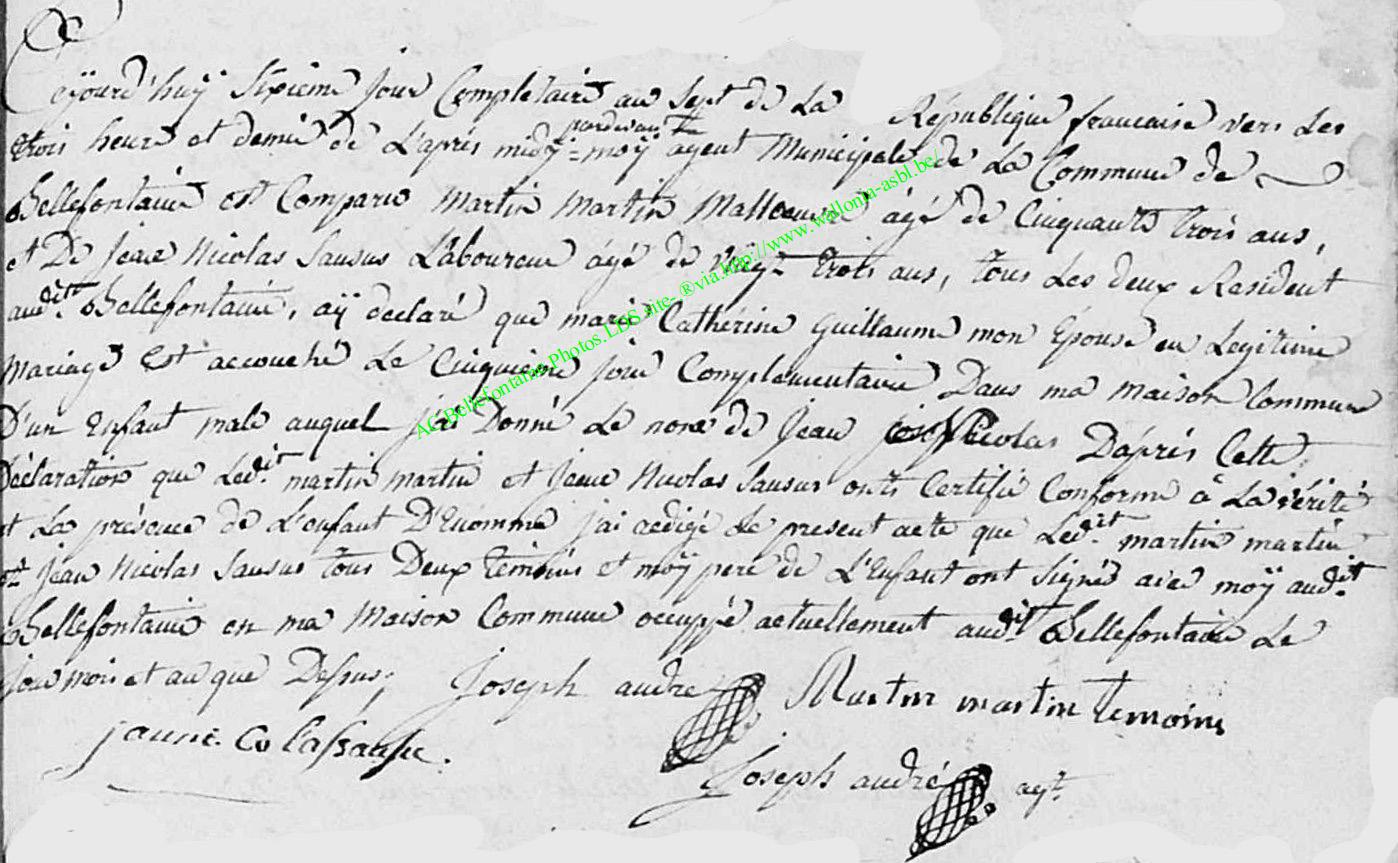 Cejourd'huÿ Sixieme jour Completaire an Sept de La République francaise vers Les
trois heure et demie de L'après midÿ = pardevant moÿ agent Municipale de La Commune de
Bellefontaine est Comparu Martin Martin agé de Cinquante trois ans,
et De Jean Nicolas Sausus Laboureur agé de vingt trois ans, tous Les deux Résident
audit Bellefontaine, aÿ declaré que marie Catherine Guillaume mon Epouse en Legitime
Mariage Est accouché Le Cinquieme jour Complementaire Dans ma maison Commune
D'un Enfant male auquel j'ai Donné Le nom de Jean Nicolas D'après Cette
Déclaration que Ledit martin martin et Jean Nicolas Sausus onts Certifié Conforme à La vérité
et La présence de L'enfant D'enomme j'ai redigé Le present acte que Ledit martin martin
et Jean Nicolas Sausus tous Deux temoins et moÿ pere de L'Enfant ont Signés avec moÿ audit
Bellefontaine en ma Maison Commune occuppé actuellement audit Bellefontaine Le
jour mois et an que Dessus; Joseph andre Martin martin temoins
Joseph andré agt.
AC.Bellefontaine.Photos.LDS.site-®via.http://www.wallonia-asbl.be/